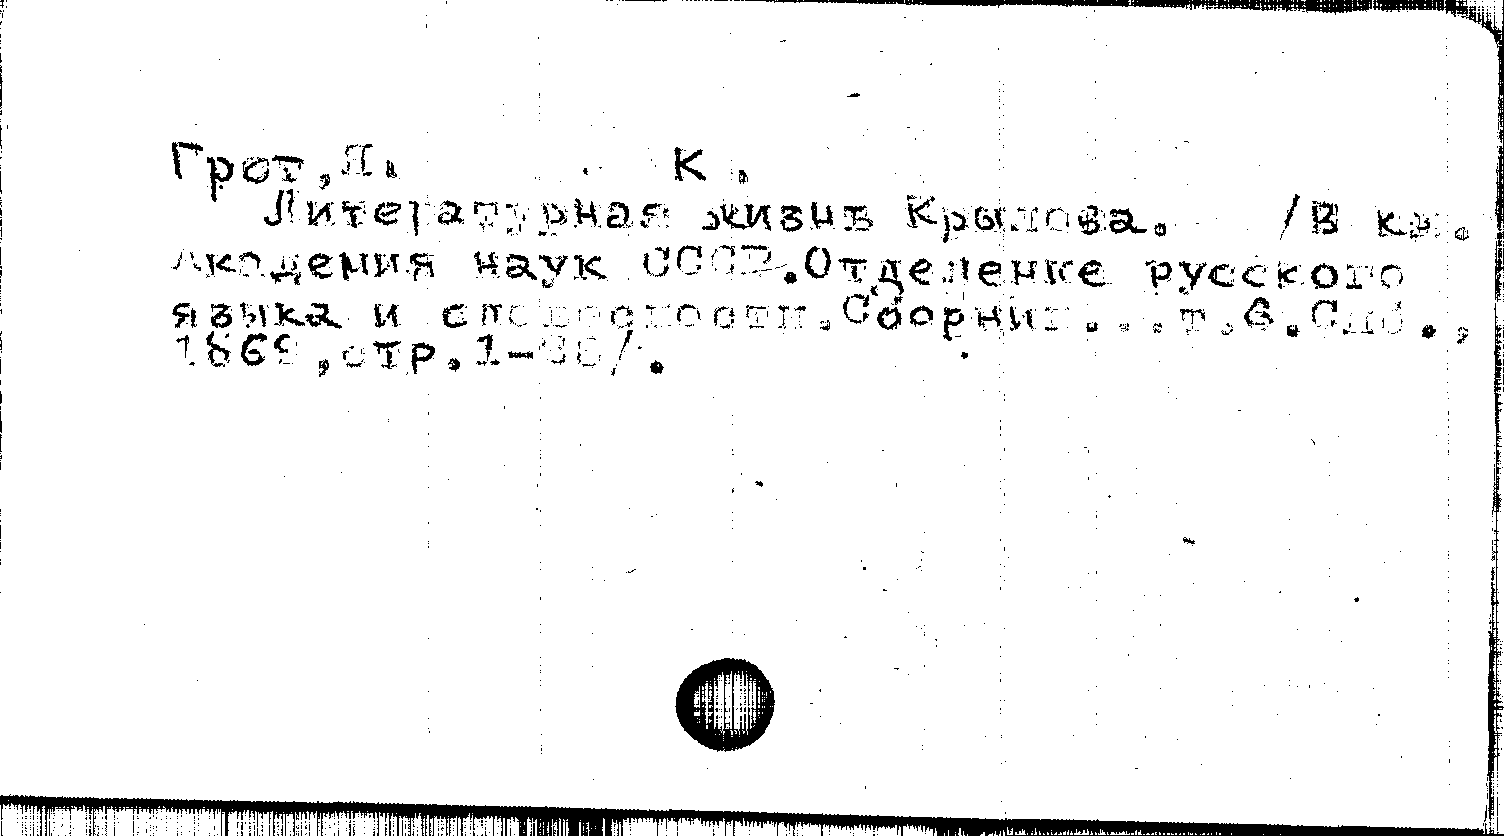 Грот,Я. К.
Литературная жизнь Крылова. /В кн.
Академия наук СССР.Отделение русского
языка и словесности.Сборник...т.6.Спб.,
1869,стр.